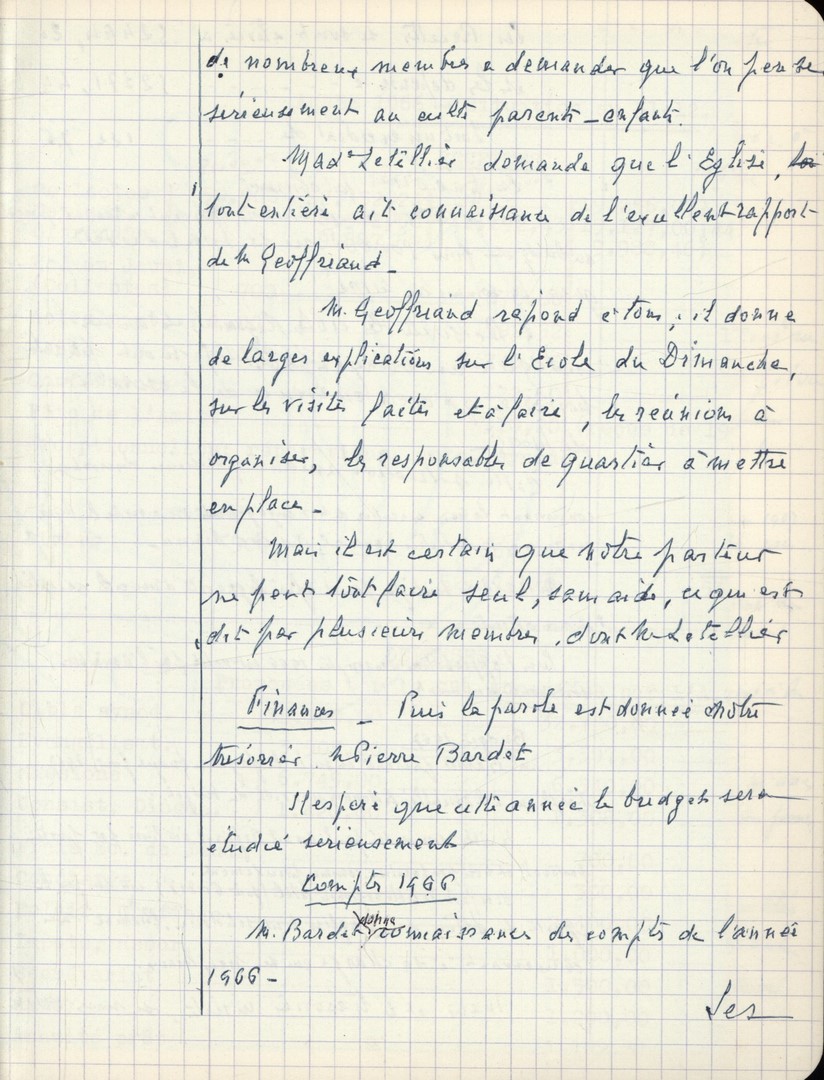 de nombreux membres a demander que l'on pense
sérieusement au culte parents-enfants.
Madᵉ Letellier demande que l'Eglise, la
tout entière ait connaissance de l'excellent rapport
de M. Geoffriaud -
M. Geoffriaud répond à tous ; il donne
de larges explications sur l'Ecole du Dimanche,
sur les visites faites et à faire, les réunions à
organiser, les responsables de quartier à mettre
en place -
Mais il est certain que nôtre pasteur
ne peut tout faire seul, sans aide, ce qui est
dit par plusieurs membres, dont M. Letellier
Finances - Puis la parole est donnée à nôtre
trésorier M Pierre Bardet
Il espère que cette année le budget sera
étudié sérieusement
Comptes 1966
M. Bardet donne connaissance des comptes de l'année
1966 -
Les